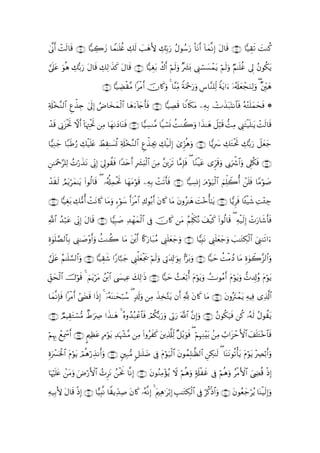 كُنتَ تَقِيًّا ﴿١٨﴾ قَالَ إِنَّمَآ أَنَا۠ رَسُولُ رَبِّكِ لِأَهَبَ لَكِ غُلَٰمًا زَكِيًّا ﴿١٩﴾ قَالَتْ أَنَّىٰ
يَكُونُ لِى غُلَٰمٌ وَلَمْ يَمْسَسْنِى بَشَرٌ وَلَمْ أَكُ بَغِيًّا ﴿٢٠﴾ قَالَ كَذَٰلِكِ قَالَ رَبُّكِ هُوَ عَلَىَّ
هَيِّنٌ ۖ وَلِنَجْعَلَهُۥٓ ءَايَةً لِّلنَّاسِ وَرَحْمَةً مِّنَّا ۚ وَكَانَ أَمْرًا مَّقْضِيًّا ﴿٢١﴾
۞ فَحَمَلَتْهُ فَٱنتَبَذَتْ بِهِۦ مَكَانًا قَصِيًّا ﴿٢٢﴾ فَأَجَآءَهَا ٱلْمَخَاضُ إِلَىٰ جِذْعِ ٱلنَّخْلَةِ
قَالَتْ يَٰلَيْتَنِى مِتُّ قَبْلَ هَٰذَا وَكُنتُ نَسْيًا مَّنسِيًّا ﴿٢٣﴾ فَنَادَىٰهَا مِن تَحْتِهَآ أَلَّا تَحْزَنِى قَدْ
جَعَلَ رَبُّكِ تَحْتَكِ سَرِيًّا ﴿٢٤﴾ وَهُزِّىٓ إِلَيْكِ بِجِذْعِ ٱلنَّخْلَةِ تُسَٰقِطْ عَلَيْكِ رُطَبًا جَنِيًّا
﴿٢٥﴾ فَكُلِى وَٱشْرَبِى وَقَرِّى عَيْنًا ۖ فَإِمَّا تَرَيِنَّ مِنَ ٱلْبَشَرِ أَحَدًا فَقُولِىٓ إِنِّى نَذَرْتُ لِلرَّحْمَٰنِ
صَوْمًا فَلَنْ أُكَلِّمَ ٱلْيَوْمَ إِنسِيًّا ﴿٢٦﴾ فَأَتَتْ بِهِۦ قَوْمَهَا تَحْمِلُهُۥ ۖ قَالُوا۟ يَٰمَرْيَمُ لَقَدْ
جِئْتِ شَيْـًٔا فَرِيًّا ﴿٢٧﴾ يَٰٓأُخْتَ هَٰرُونَ مَا كَانَ أَبُوكِ ٱمْرَأَ سَوْءٍ وَمَا كَانَتْ أُمُّكِ بَغِيًّا ﴿٢٨﴾
فَأَشَارَتْ إِلَيْهِ ۖ قَالُوا۟ كَيْفَ نُكَلِّمُ مَن كَانَ فِى ٱلْمَهْدِ صَبِيًّا ﴿٢٩﴾ قَالَ إِنِّى عَبْدُ ٱللَّهِ
ءَاتَىٰنِىَ ٱلْكِتَٰبَ وَجَعَلَنِى نَبِيًّا ﴿٣٠﴾ وَجَعَلَنِى مُبَارَكًا أَيْنَ مَا كُنتُ وَأَوْصَٰنِى بِٱلصَّلَوٰةِ
وَٱلزَّكَوٰةِ مَا دُمْتُ حَيًّا ﴿٣١﴾ وَبَرًّۢا بِوَٰلِدَتِى وَلَمْ يَجْعَلْنِى جَبَّارًا شَقِيًّا ﴿٣٢﴾ وَٱلسَّلَٰمُ عَلَىَّ
يَوْمَ وُلِدتُّ وَيَوْمَ أَمُوتُ وَيَوْمَ أُبْعَثُ حَيًّا ﴿٣٣﴾ ذَٰلِكَ عِيسَى ٱبْنُ مَرْيَمَ ۚ قَوْلَ ٱلْحَقِّ
ٱلَّذِى فِيهِ يَمْتَرُونَ ﴿٣٤﴾ مَا كَانَ لِلَّهِ أَن يَتَّخِذَ مِن وَلَدٍ ۖ سُبْحَٰنَهُۥٓ ۚ إِذَا قَضَىٰٓ أَمْرًا فَإِنَّمَا
يَقُولُ لَهُۥ كُن فَيَكُونُ ﴿٣٥﴾ وَإِنَّ ٱللَّهَ رَبِّى وَرَبُّكُمْ فَٱعْبُدُوهُ ۚ هَٰذَا صِرَٰطٌ مُّسْتَقِيمٌ ﴿٣٦﴾
فَٱخْتَلَفَ ٱلْأَحْزَابُ مِنۢ بَيْنِهِمْ ۖ فَوَيْلٌ لِّلَّذِينَ كَفَرُوا۟ مِن مَّشْهَدِ يَوْمٍ عَظِيمٍ ﴿٣٧﴾ أَسْمِعْ بِهِمْ
وَأَبْصِرْ يَوْمَ يَأْتُونَنَا ۖ لَٰكِنِ ٱلظَّٰلِمُونَ ٱلْيَوْمَ فِى ضَلَٰلٍ مُّبِينٍ ﴿٣٨﴾ وَأَنذِرْهُمْ يَوْمَ ٱلْحَسْرَةِ
إِذْ قُضِىَ ٱلْأَمْرُ وَهُمْ فِى غَفْلَةٍ وَهُمْ لَا يُؤْمِنُونَ ﴿٣٩﴾ إِنَّا نَحْنُ نَرِثُ ٱلْأَرْضَ وَمَنْ عَلَيْهَا
وَإِلَيْنَا يُرْجَعُونَ ﴿٤٠﴾ وَٱذْكُرْ فِى ٱلْكِتَٰبِ إِبْرَٰهِيمَ ۚ إِنَّهُۥ كَانَ صِدِّيقًا نَّبِيًّا ﴿٤١﴾ إِذْ قَالَ لِأَبِيهِ